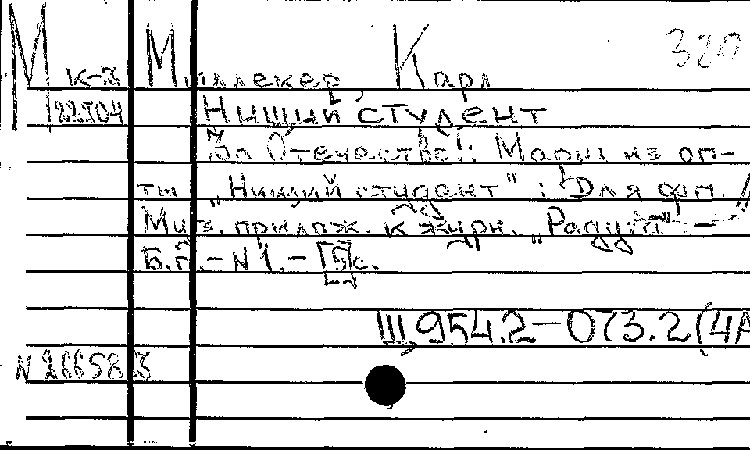 320
М к-3 Миллекер, Карл
22104 Нищий студент
За Отечество!: Марш из оп-
ты „Нищий студент" : Для фп. //
Муз. прилож. к журн. „Радуга" –
Б.г. – N 1. – [5]с.
Щ954.2-073.2(4А
N 266583